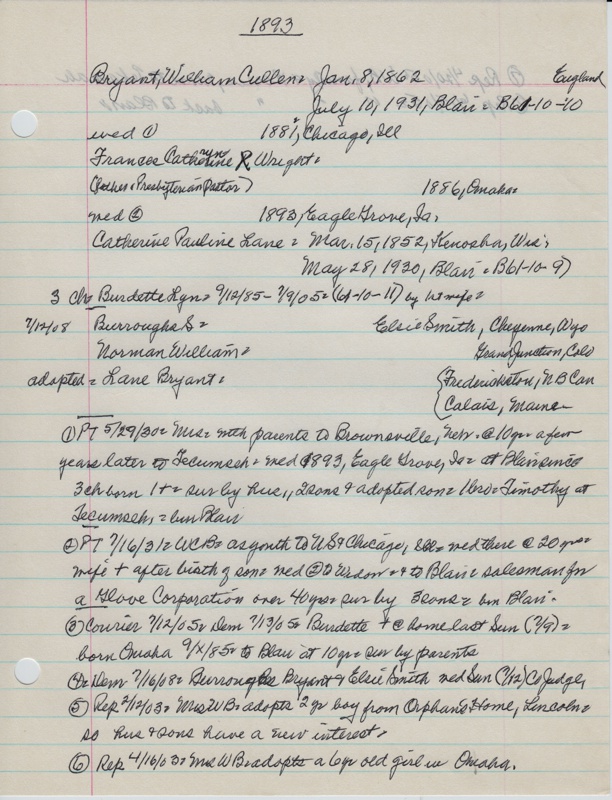 1893
Bryant, William Cullen = Jan. 8, 1862 England
July 10, 1931, Blair = B61-10-10
wed ① 1881, Chicago, Ill
Frances Catherine R. Wright =
(father = Presbyterian Pastor) 1886, Omaha =
wed ② 1893, Eagle Grove, Ia =
Catherine Pauline Lane = Mar. 15, 1852, Kenosha, Wis =
May 28, 1930, Blair = B61-10-9)
3 Ch = Burdette Lyn = 9/12/85 - 7/9/05 = (61-10-11) by 1st wife =
7/12/08 Burroughs S = Elsie Smith, Cheyenne, Wyo
Norman William = Grand Junction, Colo
adopted = Lane Bryant = {Fredericton, NB Can
{Calais, Maine
① PT 5/29/30 = Mrs = with parents to Brownsville, Nebr. @ 10 yr = a few
years later to Tecumseh = wed 1893, Eagle Grove, Ia = at Blair since
3 ch born 1 + = sur by hus, 2 sons & adopted son = 1 bro = Timothy at
Tecumseh, = bur Blair
② PT 7/16/31 = WCB = as youth to US & Chicago, Ill = wed there @ 20 yrs =
wife + after birth of son = wed ② & to Blair = salesman for
a Glove Corporation over 40 yrs = sur by 3 sons = bur Blair.
③ Courier 7/12/05 = Dem 7/13/05 = Burdette + @ home last Sun (7/9) =
born Omaha 9/X/85 = to Blair at 10 yr = sur by parents
④ = Dem 7/16/08 = Burroughs Bryant & Elsie Smith wed Sun (7/12) Co Judge,
⑤ Rep 2/12/03 = Mrs WB = adopts 2 yr boy from Orphans Home, Lincoln =
so hus & sons have a new interest =
⑥ Rep 4/16/03 = Mrs WB = adopts a 6 yr old girl in Omaha.